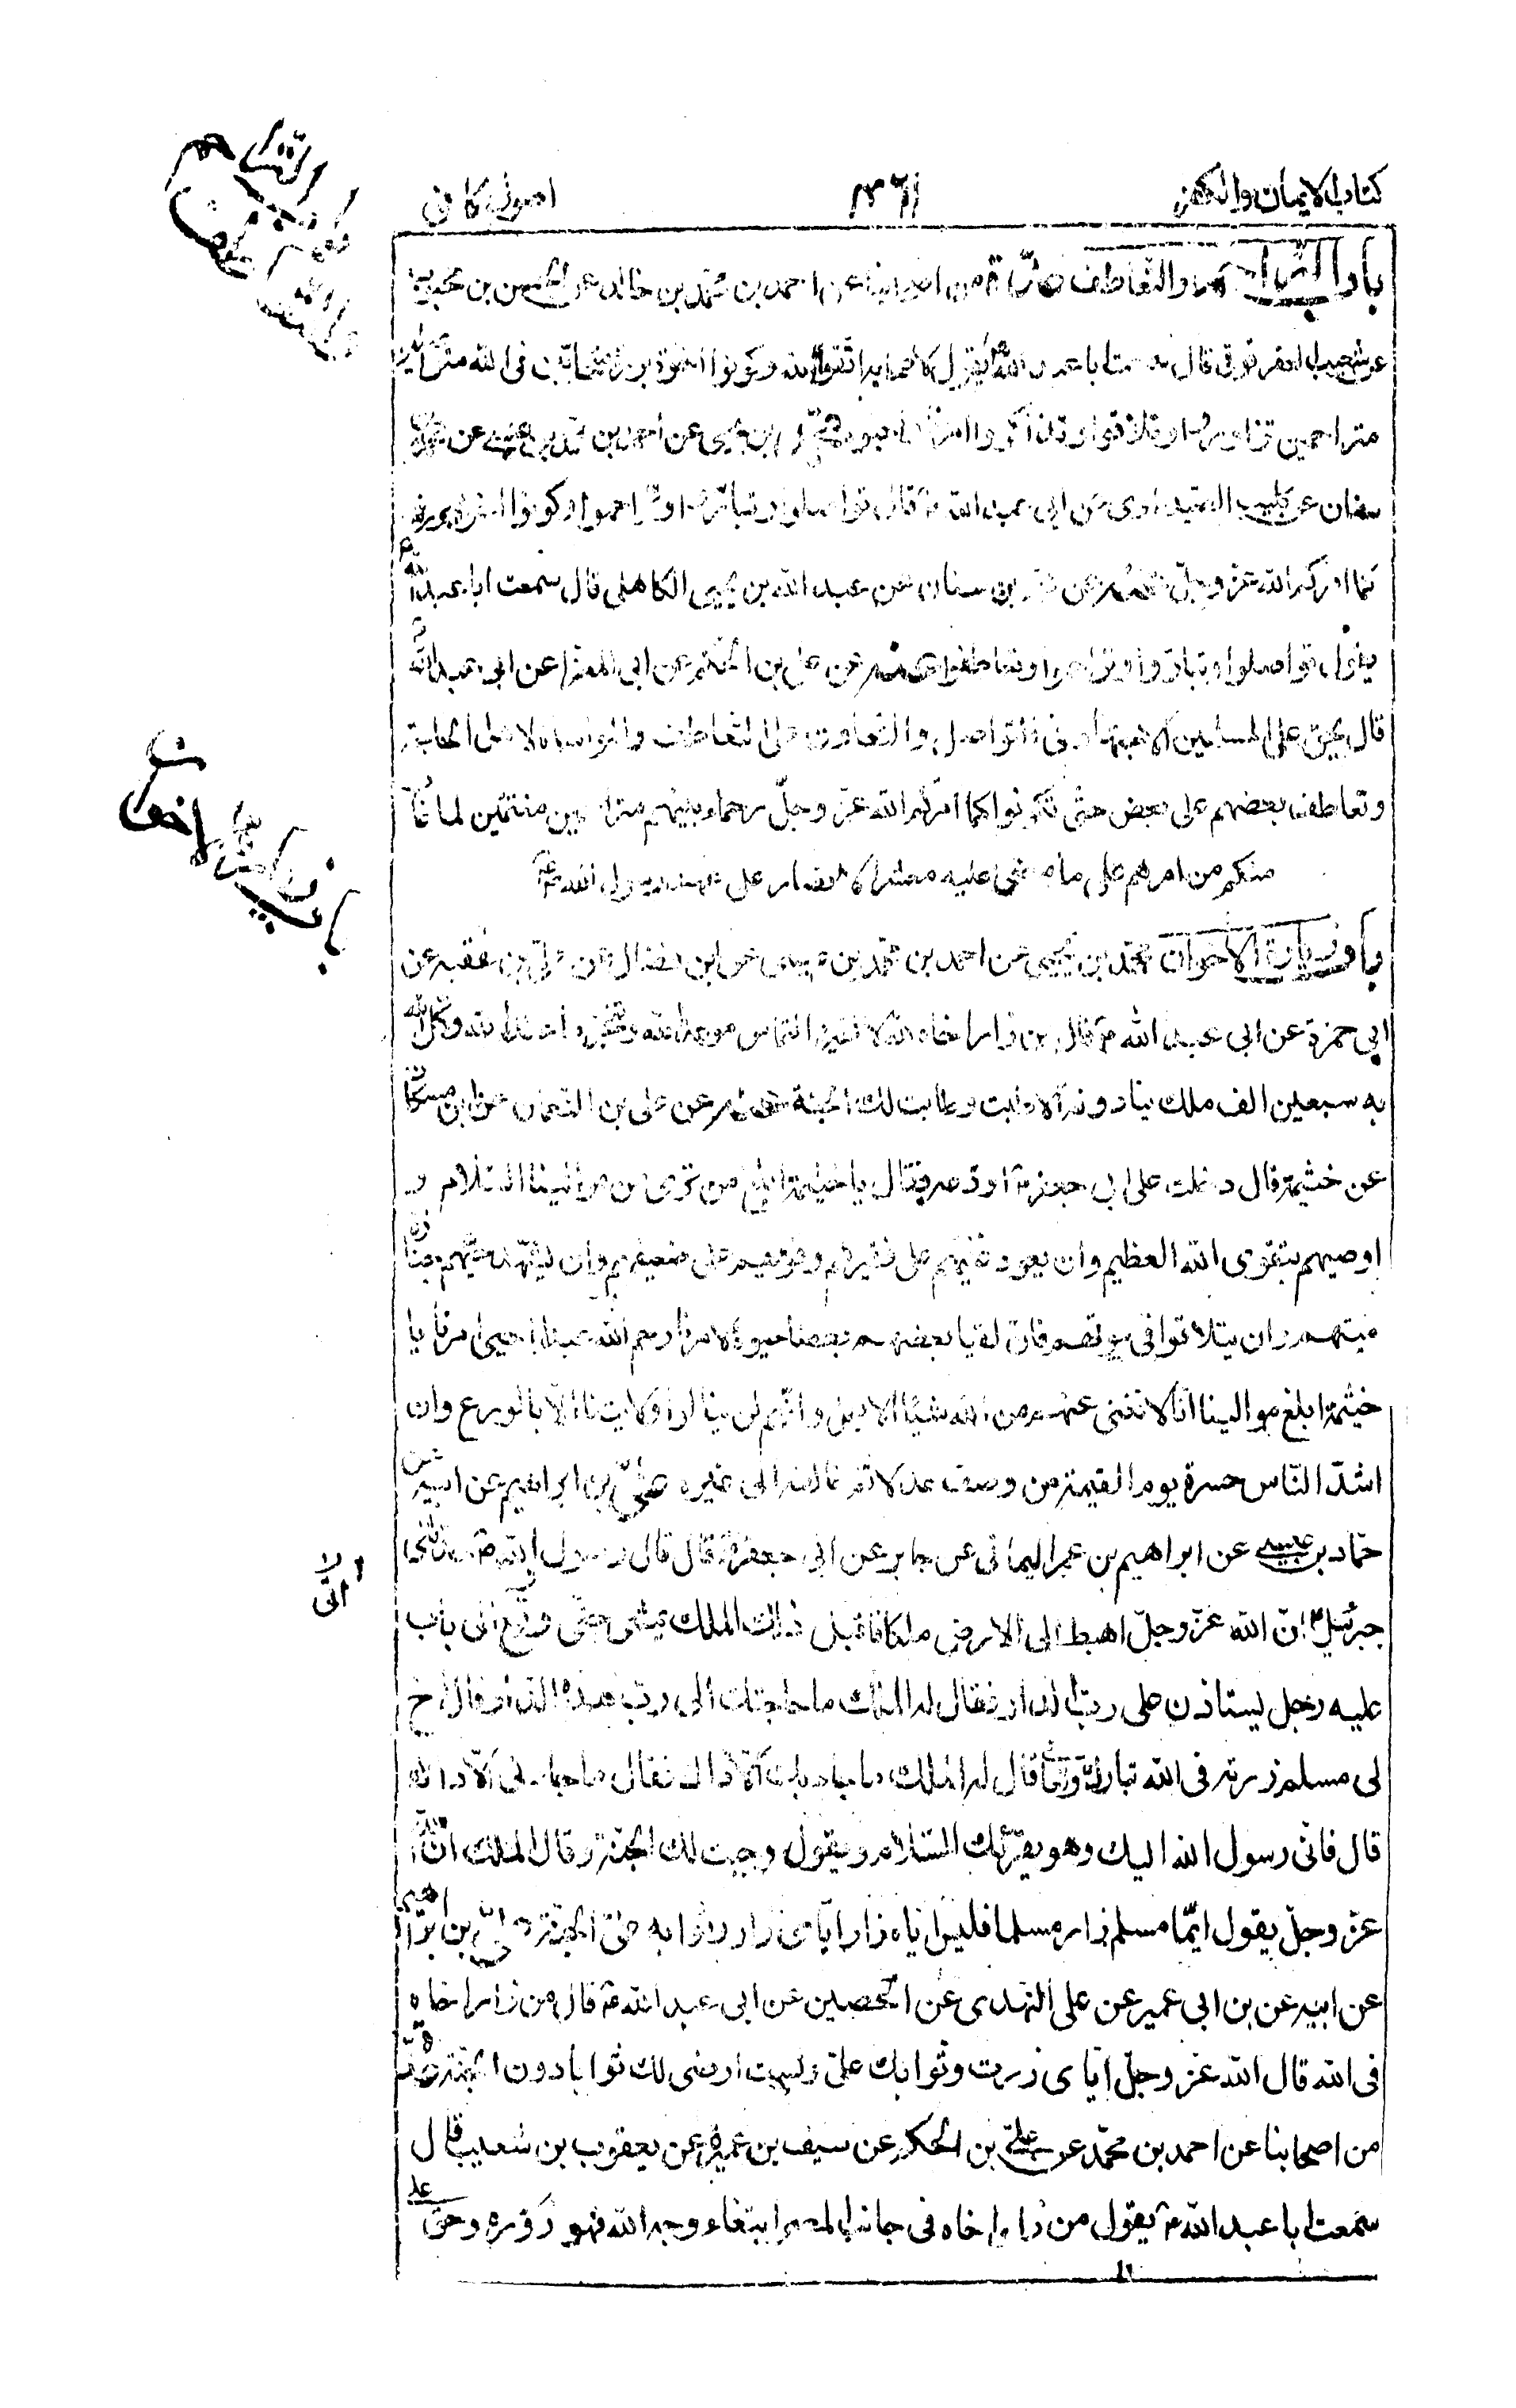 كتاب الايمان والكفر ٣٦١ اصول كافى
باب التراحم والتعاطف عدّة من اصحابنا عن احمد بن محمّد بن خالد عن الحسن بن محبوب
عن شعيب العقرقوفى قال سمعت ابا عبد الله يقول لاصحابه اتقوا الله وكونوا اخوة بررة متحابّين فى الله متواصلين
متراحمين تزاوروا وتلاقوا وتذاكروا امرنا واحيوه محمّد بن يحيى عن احمد بن محمد بن عيسى عن محمد بن
سنان عن كليب الصيداوى عن ابى عبد الله ع قال تواصلوا وتبارّوا وتراحموا وكونوا اخوة بررة
كما امركم الله عزّ وجلّ عنه عن محمد بن سنان عن عبد الله بن يحيى الكاهلى قال سمعت ابا عبد الله ع
يقول تواصلوا وتبارّوا وتراحموا وتعاطفوا عنه عن على بن الحكم عن ابى المغرا عن ابى عبد الله ع
قال يحق على المسلمين الاجتهاد فى التواصل والتعاون على التعاطف والمواساة لاهل الحاجة
وتعاطف بعضهم على بعض حتّى تكونوا كما امركم الله عزّ وجلّ رحماء بينهم متراحمين مغتمّين لما غاب
منكم من امرهم على ما مضى عليه معشر الانصار على عهد رسول الله ص
باب زيارة الاخوان محمّد بن يحيى عن احمد بن محمّد بن عيسى عن ابن فضال عن علىّ بن عقبة عن
ابى حمزة عن ابى عبد الله ع قال من زار اخاه لله لا لغيره التماس موعد الله وتنجّز ما عند الله وكّل الله
به سبعين الف ملك ينادونه الا طبت وطابت لك الجنة عنه عن على بن النعمان عن ابن مسكان
عن خثيمة قال دخلت على ابى جعفر ع اودّعه فقال يا خثيمة ابلغ من ترى من موالينا السّلام و
اوصيهم بتقوى الله العظيم وان يعود غنيّهم على فقيرهم وقويهم على ضعيفهم وان يشهد حيّهم جنازة
ميتهم وان يتلاقوا فى بيوتهم فان لقيا بعضهم بعضا حيوة لامرنا رحم الله عبدا احيى امرنا يا
خثيمة ابلغ موالينا انّا لا نغنى عنهم من الله شيئا الا بعمل وانّهم لن ينالوا ولايتنا الّا بالورع وان
اشدّ النّاس حسرة يوم القيمة من وصف عدلا ثم خالفه الى غيره علىّ بن ابراهيم عن ابيه عن
حمّاد بن عيسى عن ابراهيم بن عمر اليمانى عن جابر عن ابى جعفر ع قال قال رسول الله ص حدّثنى
جبرئيل ع انّ الله عزّ وجلّ اهبط الى الارض ملكا فاقبل ذلك الملك يمشى حتّى وقع الى باب
عليه رجل يستاذن على ربّ الدار فقال له الملك ما حاجتك الى ربّ هذه الدار قال اخ
لى مسلم زرته فى الله تبارك وتعالى قال له الملك ما جاء بك الّا ذاك فقال ما جاء بى الّا ذاك
قال فانّى رسول الله اليك وهو يقرئك السّلام ويقول وجبت لك الجنّة وقال الملك انّ الله
عزّ وجلّ يقول ايّما مسلم زار مسلما فليس ايّاه زار ايّاى زار وثوابه علىّ الجنّة علىّ بن ابراهيم
عن ابيه عن بن ابى عمير عن على النهدى عن الحصين عن ابى عبد الله ع قال من زار اخاه
فى الله قال الله عزّ وجلّ ايّاى زرت وثوابك علىّ ولست ارضى لك ثوابا دون الجنّة عدّة
من اصحابنا عن احمد بن محمّد عن علىّ بن الحكم عن سيف بن عميرة عن يعقوب بن شعيب قال
سمعت ابا عبد الله ع يقول من زار اخاه فى جانب المصر ابتغاء وجه الله فهو زوره وحقّ على
باب زيارة الاخوان